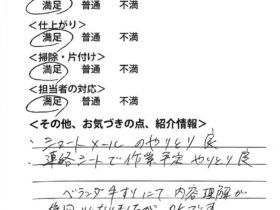 満足 普通 不満
<仕上がり>
満足 普通 不満
<掃除・片付け>
満足 普通 不満
<担当者の対応>
満足 普通 不満
<その他、お気づきの点、紹介情報>
・ショートメールのやりとり 良
・連絡シートで作業予定 やりとり 良
ベランダ手すりにて、内容理解が